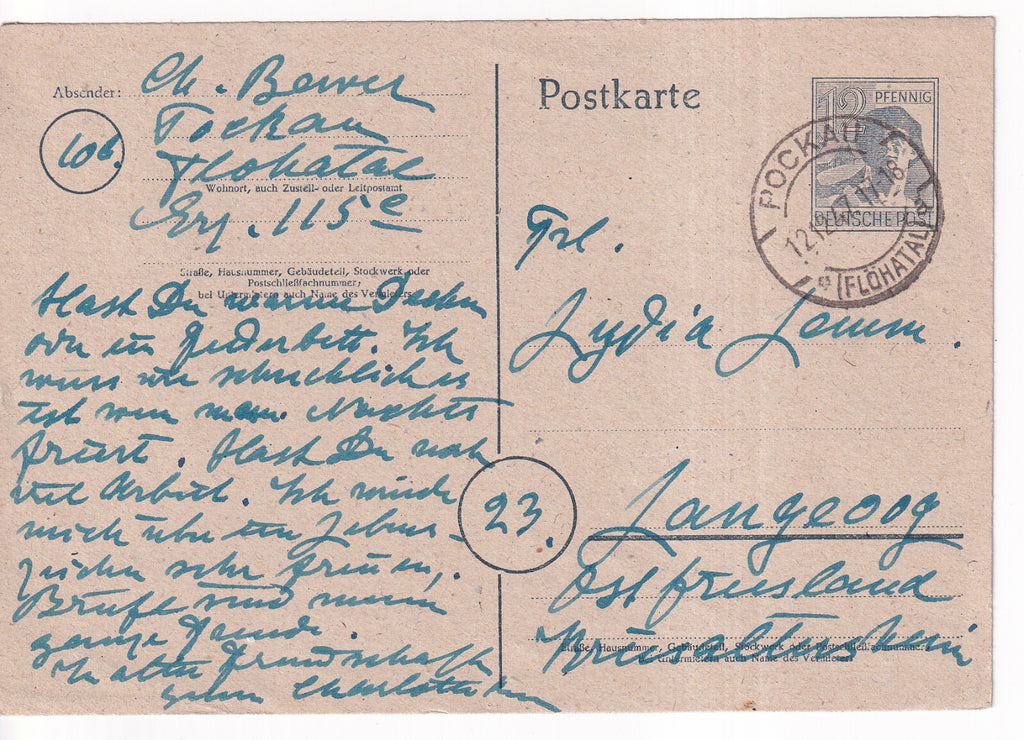 Absender: Ch. Bewer
10b.
Pockau
Flöhatal
Wohnort, auch Zustell- oder Leitpostamt
Erz. 115 e
Straße, Hausnummer, Gebäudeteil, Stockwerk oder
Postschließfachnummer;
bei Untermietern auch Name des Vermieters
Hast Du warme Decken
oder ein Federbett. Ich
weiss wie schrecklich es
ist wenn man Nachts
friert. Hast Du noch
viel Arbeit. Ich würde
mich über ein Lebens-
zeichen sehr freuen,
Briefe sind meine
ganze Freude.
In alter Freundschaft
Charlotte
Postkarte
12 PFENNIG
DEUTSCHE POST
POCKAU
12.12.47.17-18
(FLÖHATAL)
Frl.
Lydia Lemm.
23.
Langeoog
Ostfriesland
Straße, Hausnummer, Gebäudeteil, Stockwerk oder Postschließfachnummer;
bei Untermietern auch Name des Vermieters